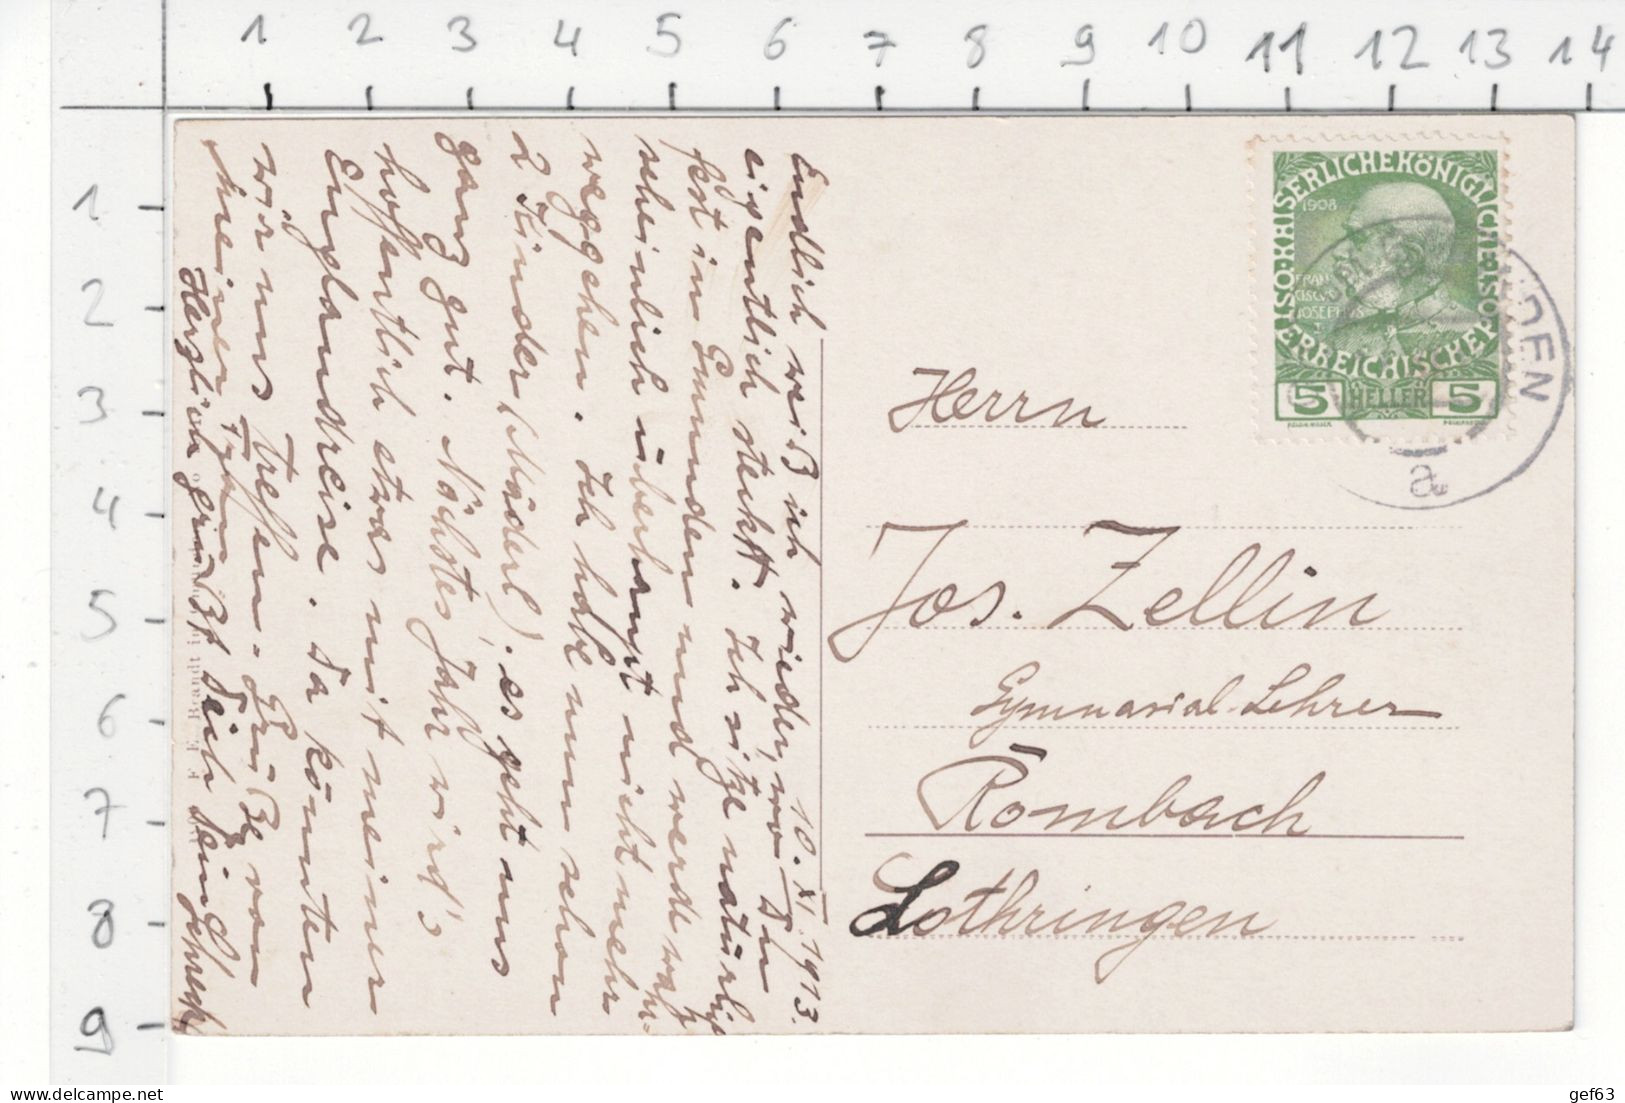 1 2 3 4 5 6 7 8 9 10 11 12 13 14
1
2
3
4
5
6
7
8
9
10. XI. 1913.
Endlich weiß ich wieder, wo Du
eigentlich steckst. Ich sitze natürlich
fest in Gmunden und werde wahr-
scheinlich überhaupt nicht mehr
weggehen. Ich habe nun schon
2 Kinder (Mäderl), es geht uns
ganz gut. Nächstes Jahr wird's
hoffentlich etwas mit meiner
Englandreise. Da könnten
wir uns treffen. Grüße von
meiner
Herzlich grüßt Dich Dein
Brandt
ÖSTERREICHISCHE KÖNIGLICHE KAISERLICHE
1908
FRAN
CISCVS
JOSEPHVS
I
5 HELLER 5
NDEN
a
Herrn
Jos. Zellin
Gymnasial-Lehrer
Rombach
Lothringen
gef63